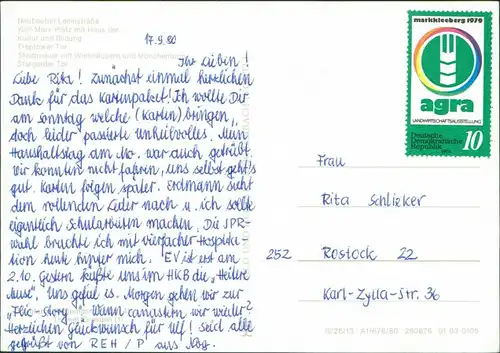 Neubauten Leninstraße
Karl-Marx-Platz mit Haus der
Kultur und Bildung
Treptower Tor
Stadtmauer mit Wiekhäusern und Mönchenturm
Stargarder Tor
17.9.80
Ihr Lieben!
Liebe Rita! Zunächst einmal herzlichen
Dank für das Kartenpaket! Ich wollte Dir
am Sonntag welche (Karten) bringen,
doch leider passierte unheilvolles. Mein
Haushaltstag am Mo. war auch getrübt,
wir konnten nicht fahren, uns selbst geht's
gut. Karten folgen später. Erdmann sieht
dem rollenden Leder nach u. ich sollte
eigentlich Schularbeiten machen. Die SPR-
wahl brachte ich mit vierfacher Hospita
tion heute hinter mich. EV ist erst am
2.10. Gestern küßte uns im HKB die "Heitere
Muse". Uns gefiel es. Morgen gehen wir zur
"Flic Story". Wann canastern wir wieder?
Herzlichen Glückwunsch für Ulf! Seid alle
gegrüßt von REH/P aus Nbg.
markkleeberg 1979
agra
LANDWIRTSCHAFTSAUSSTELLUNG
Deutsche
Demokratische
Republik
10
Frau
Rita Schlieker
252 Rostock 22
Karl-Zylla-Str. 36
III/26/13 A1/1678/80 260876 01 03 0105